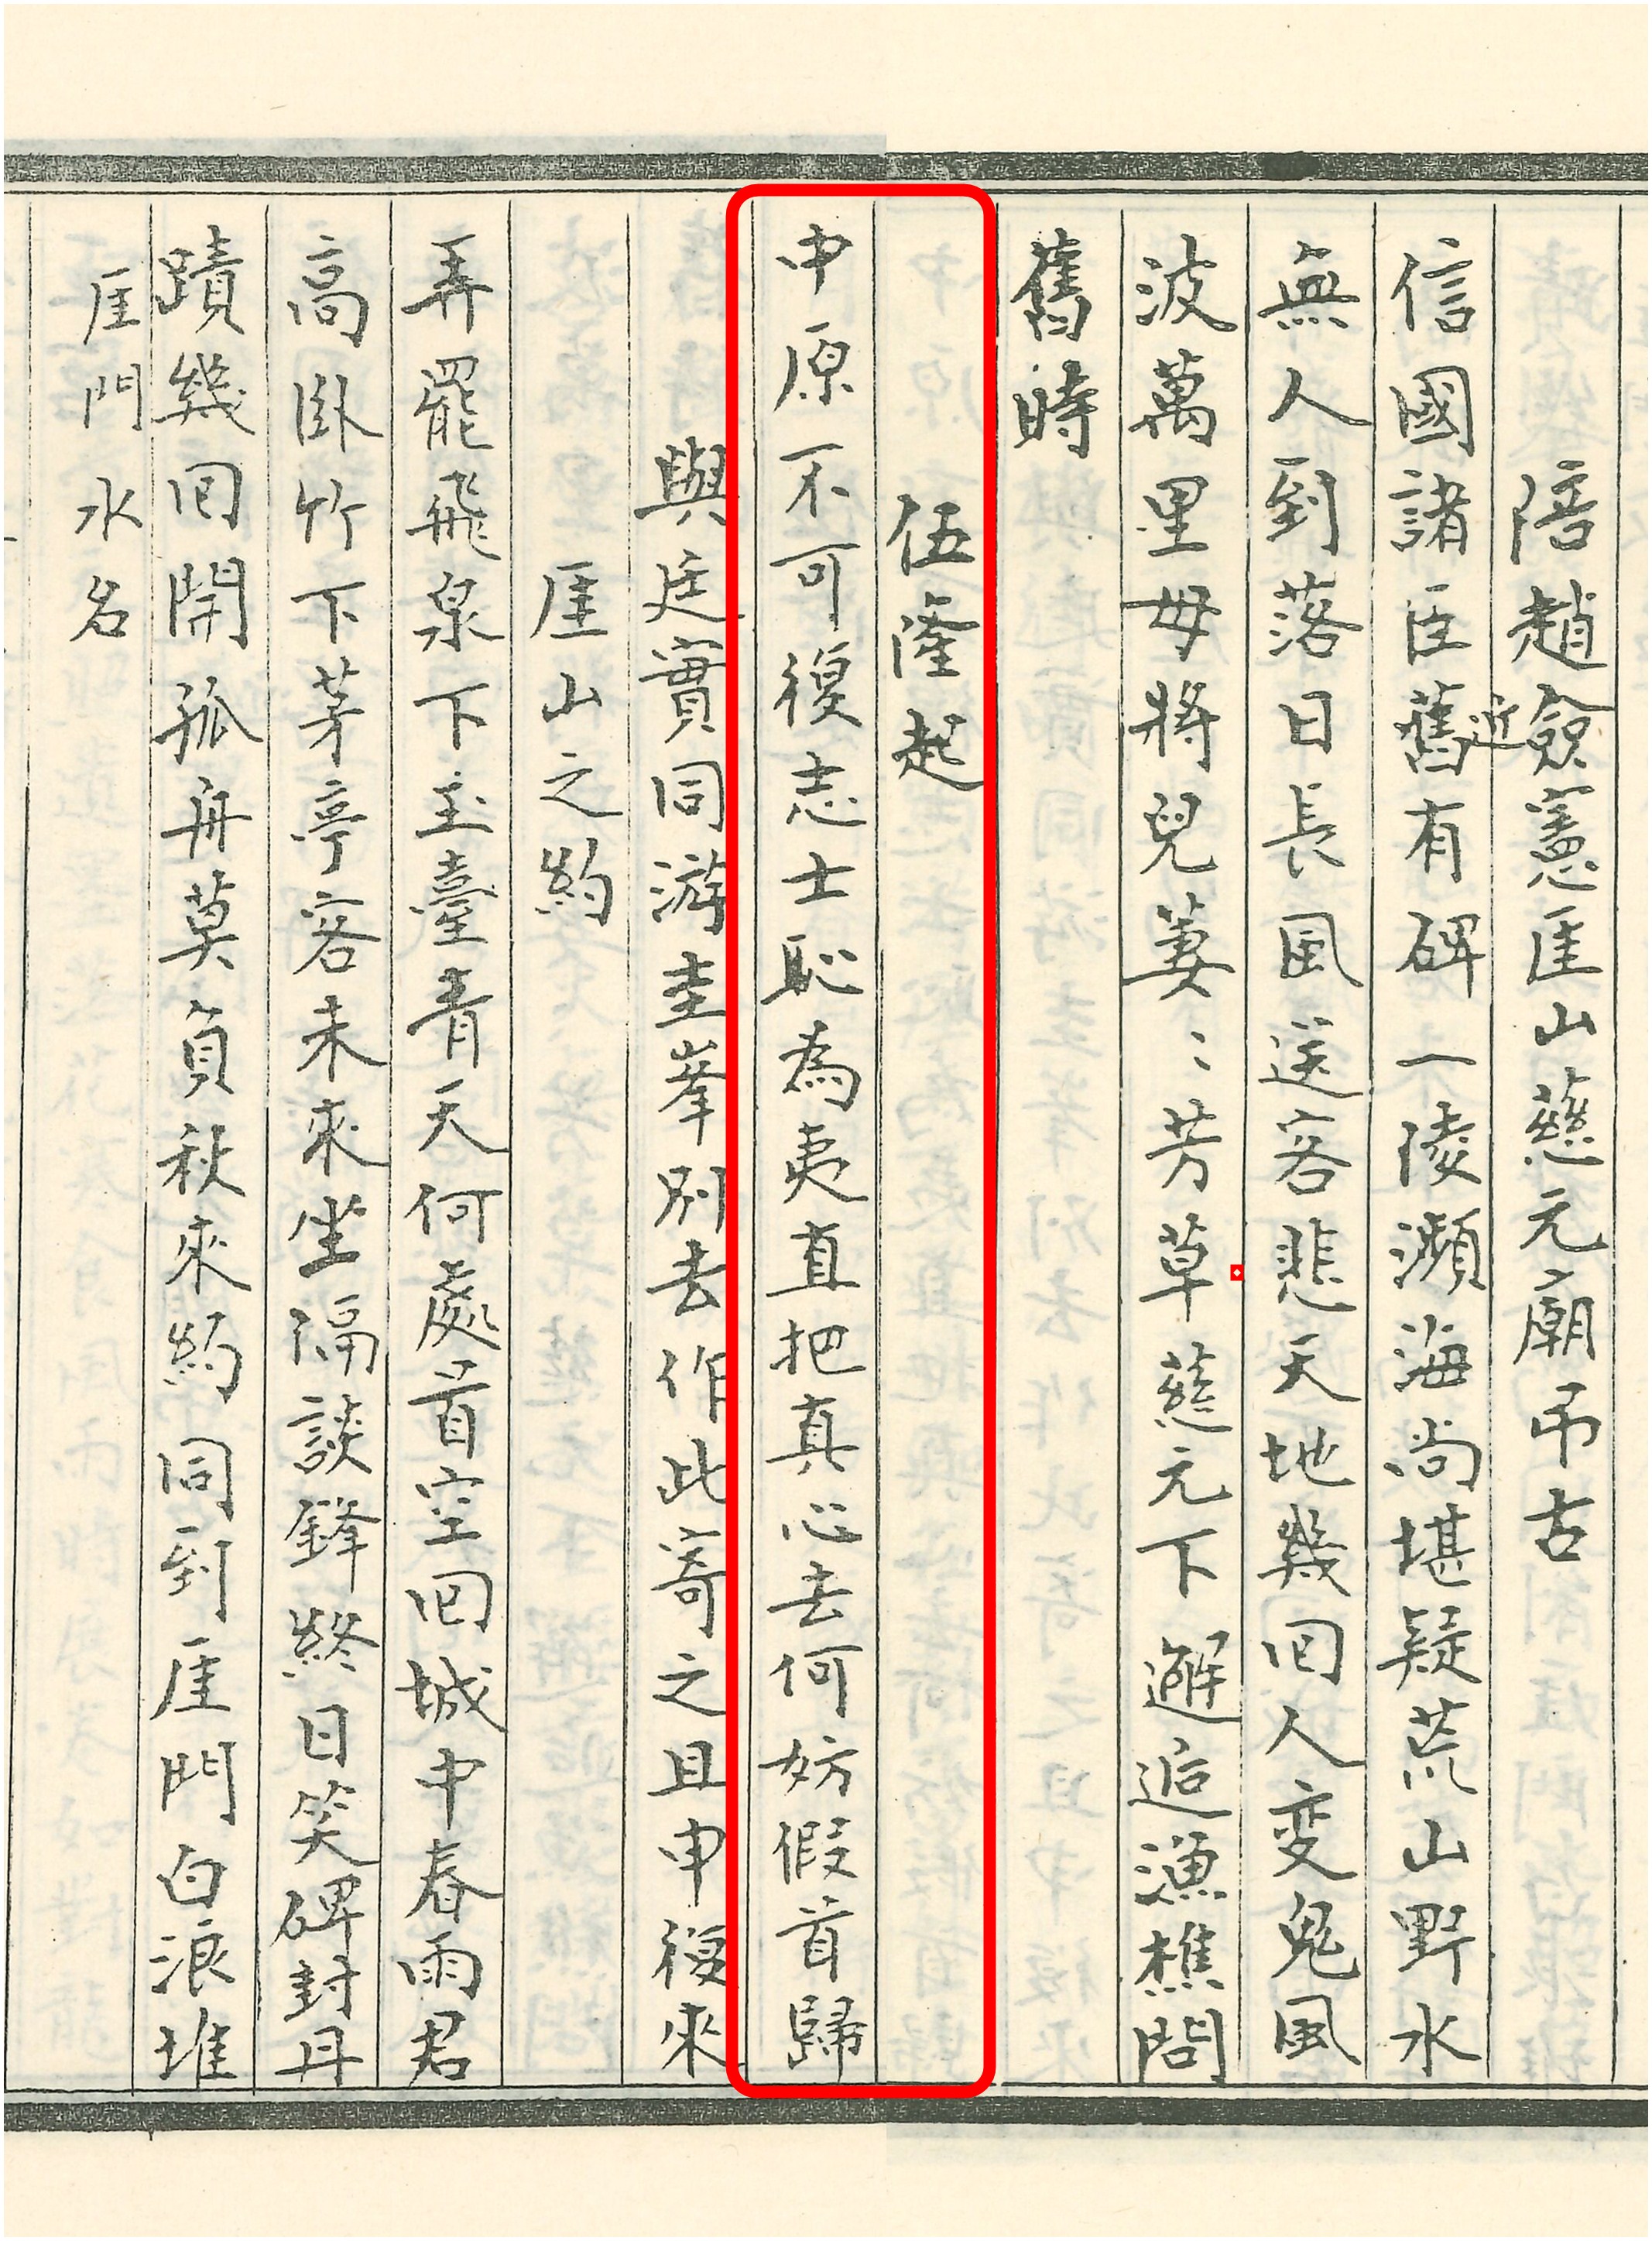 陪趙僉憲厓山慈元廟弔古
近
信國諸臣舊有碑一陵瀕海尚堪疑荒山野水
無人到落日長風送客悲天地幾回人變鬼風
波萬里母將兒萋〻芳草慈元下邂逅漁樵問
舊時
伍隆起
中原不可復志士恥為夷直把真心去何妨假首歸
與廷實同游圭峯別去作此寄之且申復來
厓山之約
弄罷飛泉下玉臺青天何處首空回城中春雨君
高臥竹下茅亭客未來坐隔談鋒終日笑碑封丹
蹟幾回開孤舟莫負秋來約同到厓門白浪堆
厓門水名